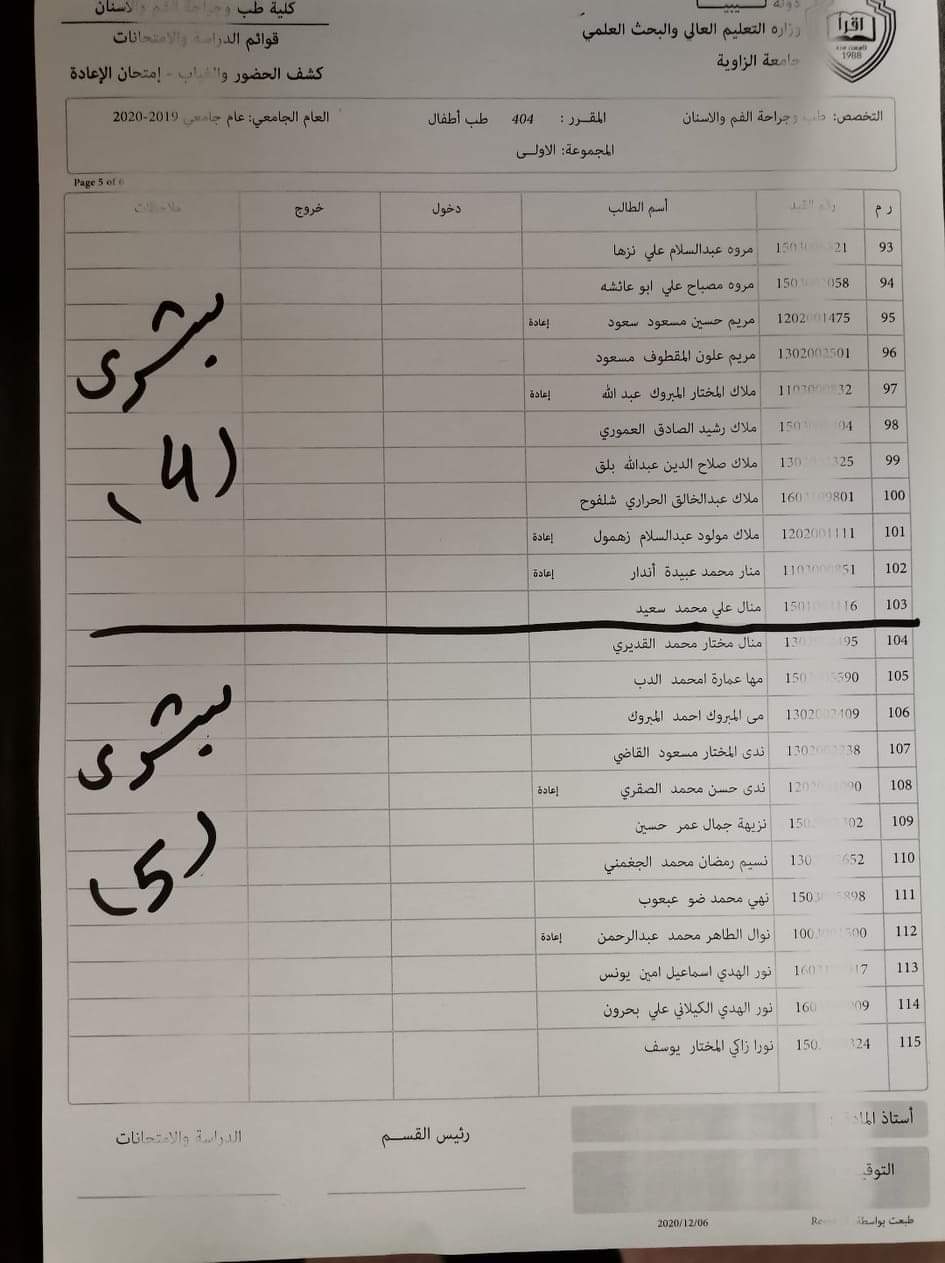 كلية طب وجراحة الفم والاسنان
قوائم الدراسة والامتحانات
كشف الحضور والغياب - إمتحان الإعادة
دولة ليبيا
وزاره التعليم العالي والبحث العلمي
جامعة الزاوية
اقرأ
1988
التخصص: طب وجراحة الفم والاسنان المقـرر : 404 طب أطفال العام الجامعي: عام جامعي 2019-2020
المجموعة: الاولـى
Page 5 of 6
ر م رقم القيد أسم الطالب دخول خروج ملاحظات
93 مروه عبدالسلام علي نزها
94 مروه مصباح علي ابو عائشه
95 1202001475 مريم حسين مسعود سعود إعادة
96 1302002501 مريم علون المقطوف مسعود
97 ملاك المختار المبروك عبد الله إعادة
98 ملاك رشيد الصادق العموري
99 ملاك صلاح الدين عبدالله بلق
100 ملاك عبدالخالق الحراري شلفوح
101 1202001111 ملاك مولود عبدالسلام زهمول إعادة
102 منار محمد عبيدة أندار إعادة
103 منال علي محمد سعيد
بشرى
(4)
104 منال مختار محمد القديري
105 مها عمارة امحمد الدب
106 مى المبروك احمد المبروك
107 ندى المختار مسعود القاضي
108 ندى حسن محمد الصقري إعادة
109 نزيهة جمال عمر حسين
110 نسيم رمضان محمد الجغمني
111 نهي محمد ضو عبعوب
112 نوال الطاهر محمد عبدالرحمن إعادة
113 نور الهدي اسماعيل امين يونس
114 نور الهدي الكيلاني علي بحرون
115 نورا زاكي المختار يوسف
بشرى
(5)
أستاذ المادة :
التوقيع
رئيس القســم
الدراسة والامتحانات
طبعت بواسطة
2020/12/06